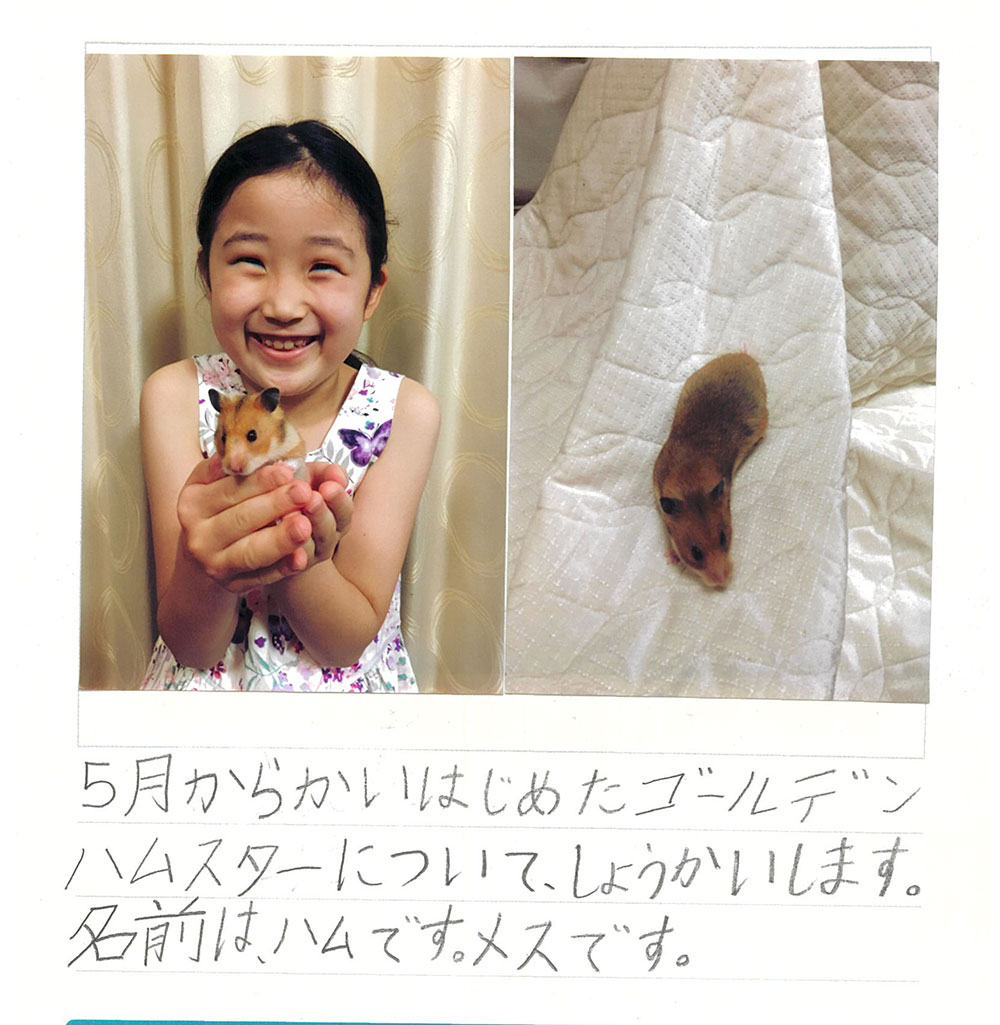 5月からかいはじめたゴールデン
ハムスターについて、しょうかいします。
名前は、ハムです。メスです。